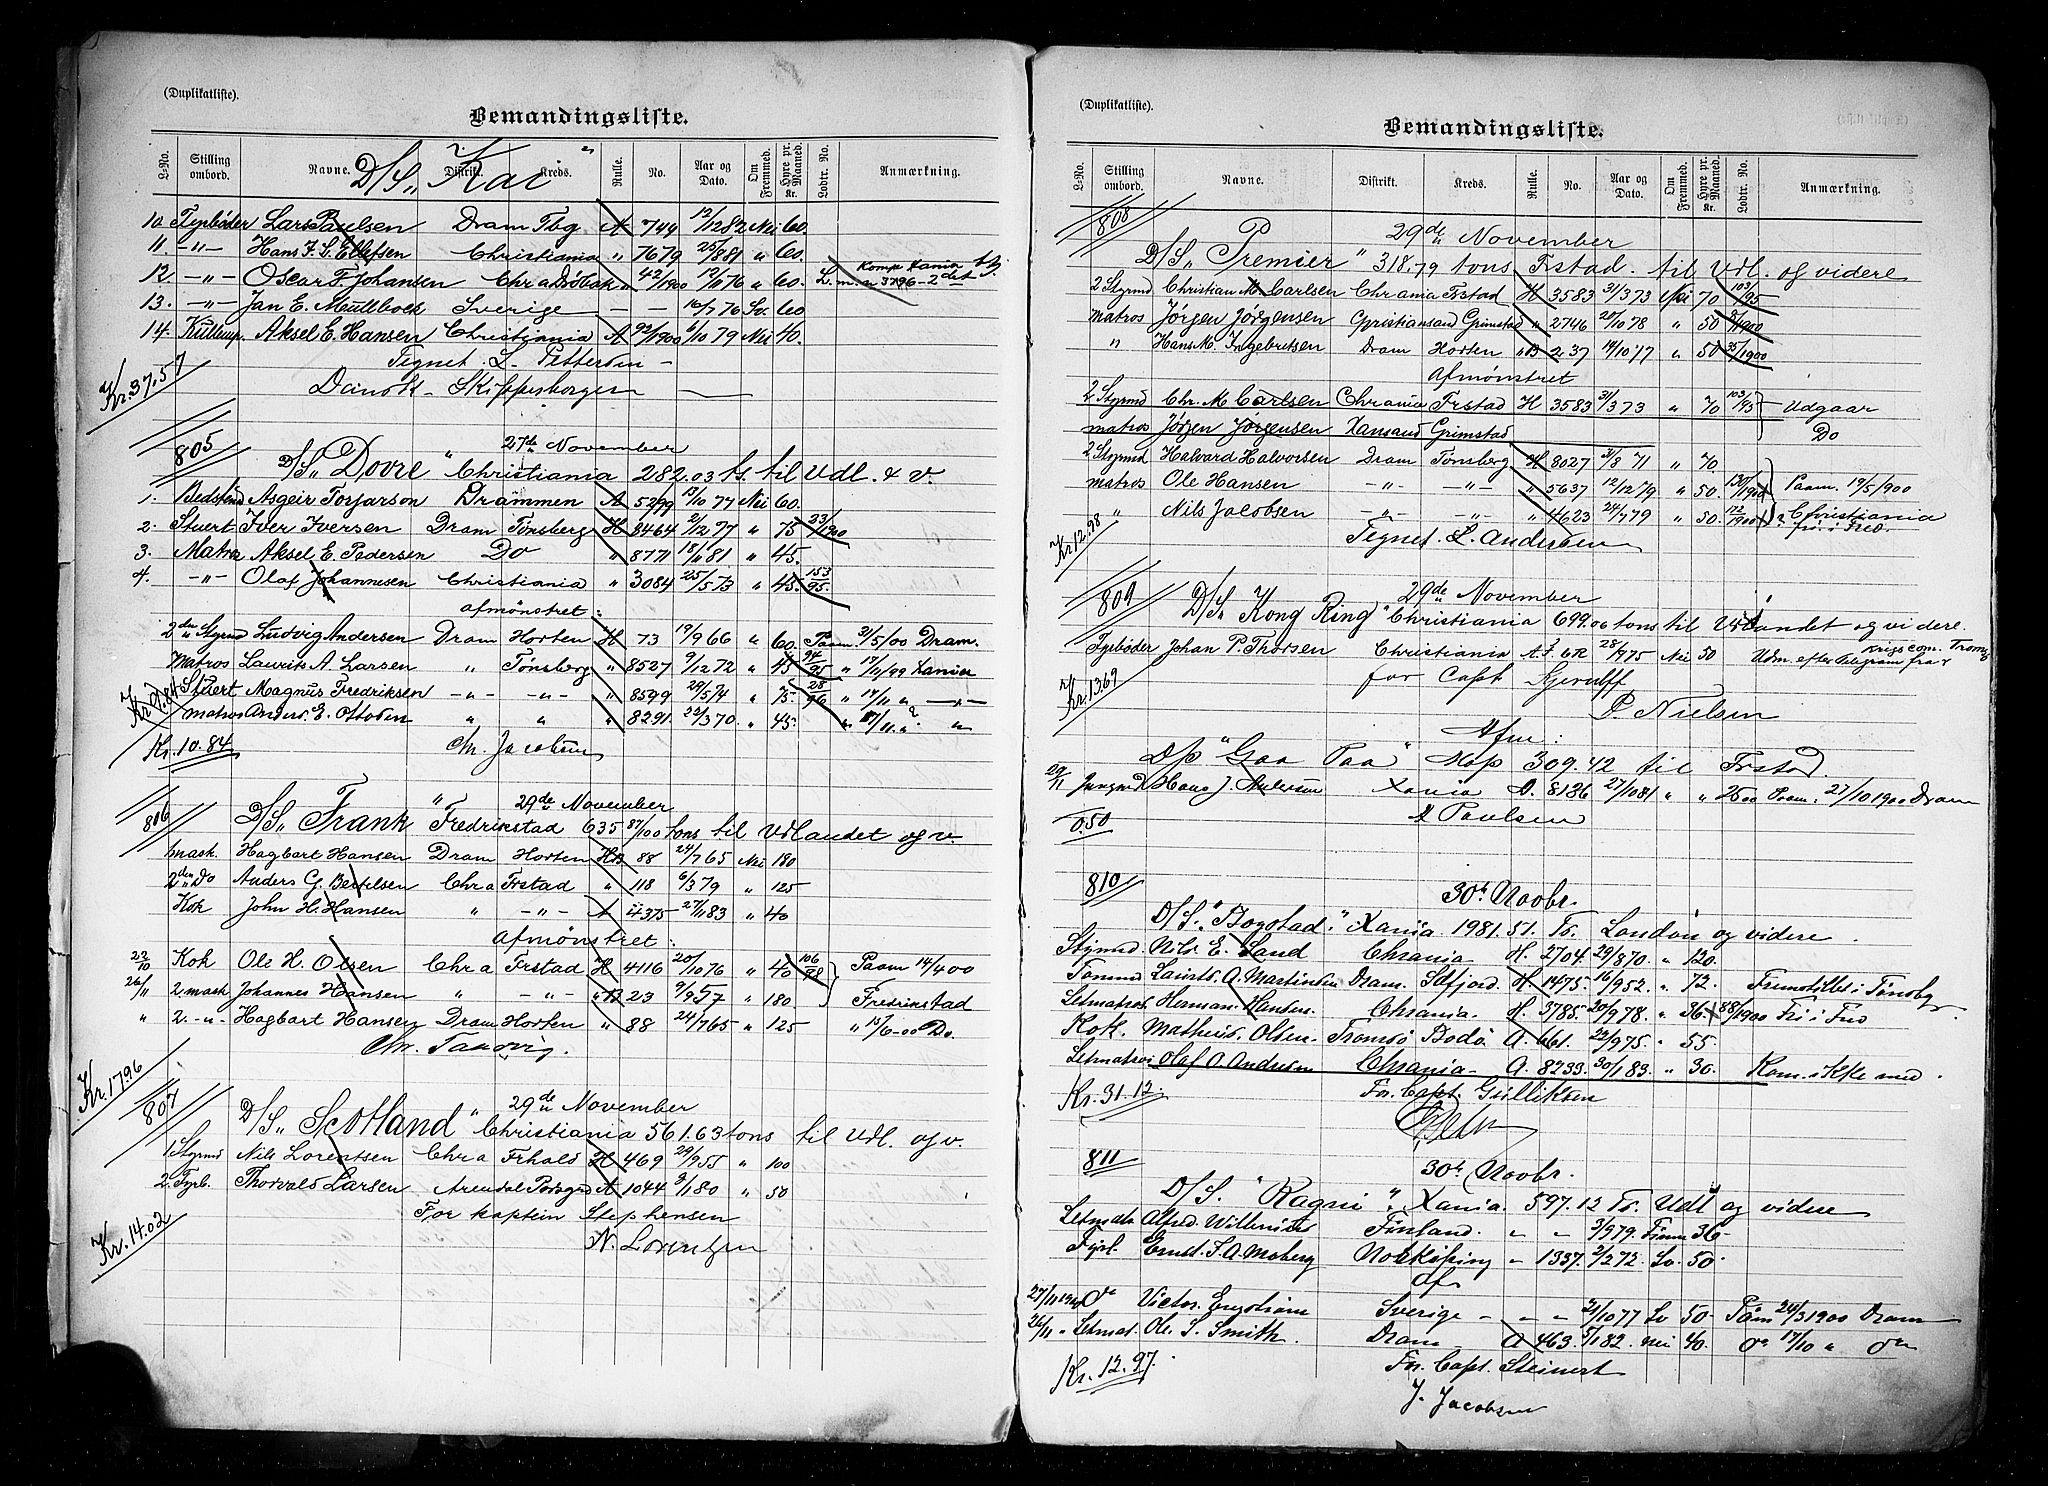 (Duplikatliste).
Bemandingsliste.
L-No. Stilling ombord. Navne. Distrikt. Kreds. Rulle. No. Aar og Dato. Om Fremmed. Hyre pr. Maaned. Kr. Lodtr. No. Anmærkning.
D/S „Kai"
10 Fyrbøder Lars Paulsen Dram Tbg A 749 12/12 82 Nei 60.
11. -„- Hans F. L. Ellefsen Christiania „ 7679 25/8 81 „ 60.
12. -„- Oscar F. Johansen Chra Drøbak „ 42/1900 12/10 76 „ 60.
13. -„- Jan E. Mullbock Sverige — — 10/7 76 Sv. 60
14. Kullemp. Aksel E. Hansen Christiania A 92/1900 6/10 79 Nei 40.
Tegnet L. Pettersen
Kr. 37,57
Dansk Skippesborger
805 27de November
D/S „Dovre" Christiania 282.03 ts. til Udl. & v.
1. Bedstmd Asgeir Torjarson Drammen A 5299 13/10 77 Nei 60.
2. Stuert Iver Iversen Dram Tønsberg H 8464 2/12 77 „ 75 33/1900
3. Matros Aksel E. Pedersen Do „ 8771 18/11 81 „ 45.
4. -„- Olaf Johannesen Christiania „ 3084 25/5 73 „ 45. 153/95.
Afmønstret:
2den Styrmd Ludvig Andersen Dram Horten H 73 19/9 66 „ 60. Paam. 31/5/00 Dram.
Matros Laurits A. Larsen „ Tønsberg „ 8527 9/12 72 „ 45 94/95 „ 17/11/99 Xania
Stuert Magnus Fredriksen -„- -„- „ 8599 29/5 74 „ 75. 28/96 „ 14/11 „ -„-
Matros Anders E. Ottosen „ „ „ 8291 22/3 70 „ 45. „ 17/11 „ „
Kr. 10.84 Chr. Jacobsen
806 29de November
D/S „Frank" Fredrikstad 635 87/100 tons til Udlandet og v.
1 mask. Hagbart Hansen Dram Horten HB 88 24/7 65 Nei 180
2den Do Anders G. Bertelsen Chra Frstad „ 118 6/3 79 „ 125
Kok John H. Hansen „ -„- A 4375 27/11 83 „ 40
Afmønstret:
22/10 Kok Ole H. Olsen Chra Frstad H 4116 20/10 76 „ 40 106/98 Paam 14/4 00
26/11 2 mask Johannes Hansen „ -„- „B 23 9/9 57 „ 180 Fredrikstad
„ 2. -„- Hagbart Hansen Dram Horten „ 88 24/7 65 „ 125 „ 15/6-00 Do.
Chr. Tandvig.
Kr. 17.96
807 29de November
D/S „Scotland" Christiania 561.63 tons til Udl. og v.
1 Styrmd Nils Lorentsen Chra Frhald H 469 29/9 55 „ 100
2. Fyrb. Thorvald Larsen Arendal Porsgrd A 1044 3/1 80 „ 50
For kaptein Stephensen
N. Lorentzen
Kr. 14.02
(Duplikatliste).
Bemandingsliste.
L-No. Stilling ombord. Navne. Distrikt. Kreds. Rulle. No. Aar og Dato. Om Fremmed. Hyre pr. Maaned. Kr. Lodtr. No. Anmærkning.
808 29de November
D/S „Premier" 318.79 tons Frstad. til Udl. og videre
2 Styrmd Christian M. Carlsen Chrania Frstad H 3583 31/3 73 Nei 70 103/95
Matros Jørgen Jørgensen Christiansand Grimstad „ 2746 20/10 78 „ 50
„ Hans M. Ingebretsen Dram Horten „B 237 14/10 77 „ 50 35/1900
Afmønstret
2 Styrmd Chr. M. Carlsen Chrania Frstad H 3583 31/3 73 „ 70 103/95 Udgaar
matros Jørgen Jørgensen Xansand Grimstad Do
2 Styrmd Halvard Halvorsen Dram Tønsberg H 8027 31/8 71 „ 70
matros Ole Hansen -„- -„- „ 5637 12/12 79 „ 50 130/1900 Paam. 19/5/900
„ Nils Jacobsen -„- -„- „ 4623 24/1 79 „ 50 172/1900 Christiania
fri i Fred.
Kr. 12.98 Tegnet. L. Andersen
809 29de November
D/S „Kong Ring" Christiania 699.06 tons til Udlandet og videre.
Fyrbøder Johan P. Thorsen Christiania A.F. 28/9 75 Nei 50 Udm. efter telegram fra Krigscom. Troms
Kr. 13.69 for Capt Kjerulff
P. Nielsen
Afm:
D/S „Gaa Paa" Mop 309.42 til Frstad.
29/11 Jungmd Hans J. Andersen Xania A. 8136 27/10 81 „ „ 25 00 Paam. 27/10 1900 Dram
0.50 A Paulsen
810 30te Novbr.
D/S. "Bogstad." Xania 1981.51 Ts. London og videre.
Styrmd. Nils E. Lund Chrania H. 2704. 29/8 70. „ 120.
Tømmd Laurits A. Martinsen Dram. Sdfjord. H. 1475. 16/9 52. „ 72. Fremstillet i Tønsbg
Letmatros Herman Hansen Chrania. H. 3785. 20/9 78. „ 36. 88/1900 Fri i Fred
Kok. Mathias Olsen Tromsø Bodø A. 661. 22/9 75. „ 55.
Letmatros Olaf O. Andersen Chrania A. 8233. 30/1 83. „ 30. Kom. ikke med.
Kr. 31.12. For. Capt. Gulliksen
811 30te Novbr.
D/S. "Ragni" Xania. 597.12 Ts. Udl og videre
Letmatr Alfred. Finland. „ „ 3/9 79. Finne 36-
Fyrb. Ernst. F. A. Moberg Norköping „ 1337. 2/2 72. Sv. 50.
Af
27/11 1900 do Victor Engström Sverige - „ „ 21/10 77 Sv 50. Paam 24/3 1900 Dram
26/11 „ Letmat. Ole L. Smith. Dram A 463. 5/1 82. nei 40. do 17/10 „ do
Kr. 12.97. For. Capt. Steinert
J. Jacobsen